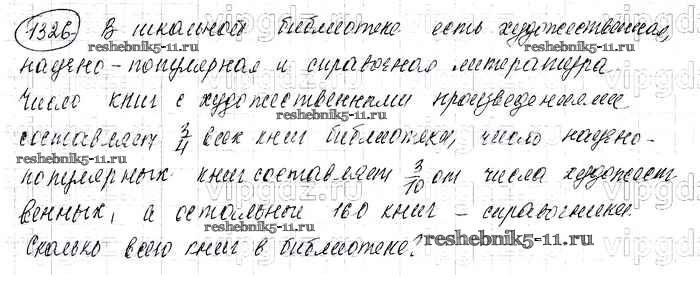 1326. В школьной библиотеке есть художественная,
научно-популярная и справочная литература
Число книг с художественными произведениями
составляет 3/4 всех книг библиотеки, число научно-
популярных книг составляет 3/10 от числа художест
венных, а остальные 160 книг - справочники.
Сколько всего книг в библиотеке?
reshebnik5-11.ru
reshebnik5-11.ru
reshebnik5-11.ru
reshebnik5-11.ru
reshebnik5-11.ru
reshebnik5-11.ru